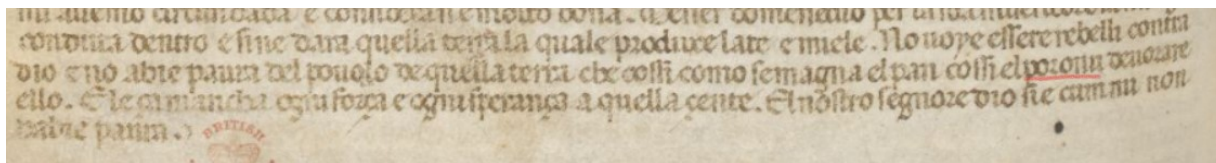 nui avemo circundada e
condura dentro e sine dara quella terra la quale produxe late e miele. No uoye essere rebelli contra
dio e no abie paura del pouolo de quella terra che cossi como se magna el pan cossi el poronu deuorare
ello. E le ça mancha ogni força e ogni sperança a quella çente. El nostro segnore dio sie cum nu non
habie paura.
BRITISH